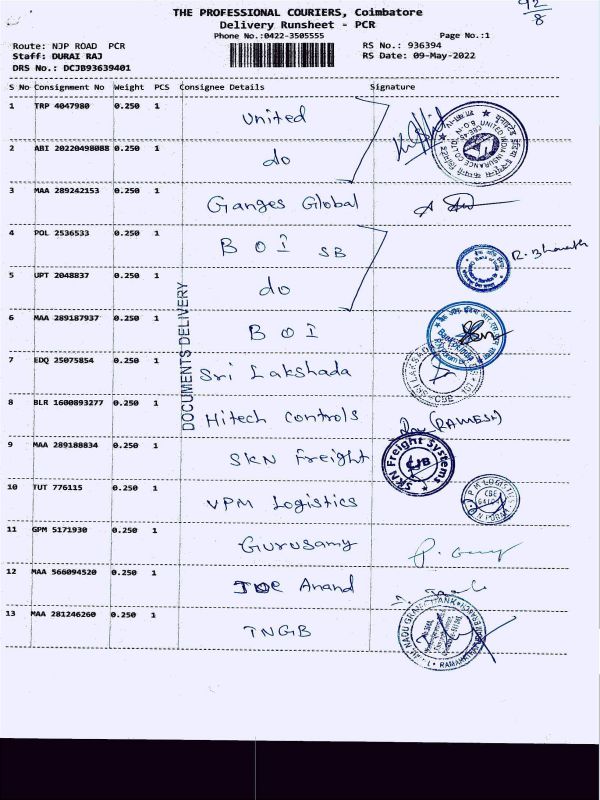 92
8
THE PROFESSIONAL COURIERS, Coimbatore
Delivery Runsheet - PCR
Phone No.:0422-3505555 Page No.:1
Route: NJP ROAD PCR RS No.: 936394
Staff: DURAI RAJ RS Date: 09-May-2022
DRS No.: DCJB93639401
S No Consignment No Weight PCS Consignee Details Signature
1 TRP 4047980 0.250 1 United
2 ABI 20220498088 0.250 1 do
3 MAA 289242153 0.250 1 Ganges Global
4 POL 2536533 0.250 1 BOI SB R. Bharath
5 UPT 2048837 0.250 1 do
6 MAA 289187937 0.250 1 BOI
7 EDQ 25075854 0.250 1 Sri Lakshada
8 BLR 1600893277 0.250 1 Hitech Controls (RAMESH)
9 MAA 289188834 0.250 1 SKN Freight SKN Freight Systems CJB
10 TUT 776115 0.250 1 VPM Logistics
11 GPM 5171930 0.250 1 Gurusamy
12 MAA 566094520 0.250 1 Joe Anand
13 MAA 281246260 0.250 1 TNGB
DOCUMENTS DELIVERY